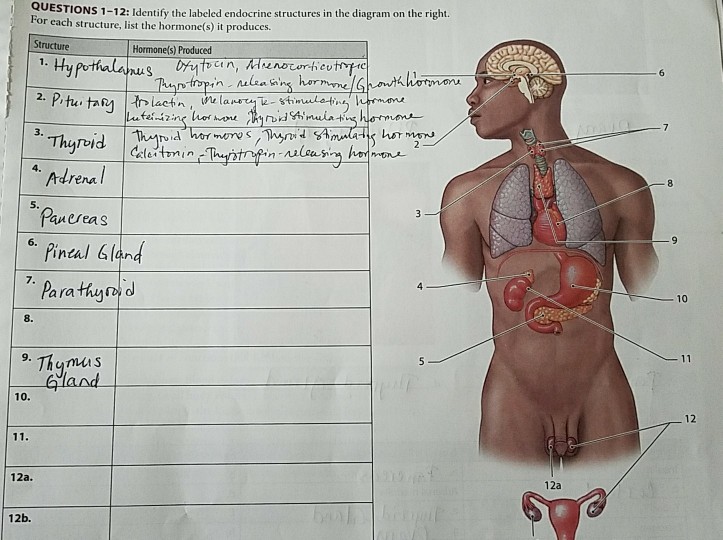 QUESTIONS 1–12: Identify the labeled endocrine structures in the diagram on the right.
For each structure, list the hormone(s) it produces.
Structure Hormone(s) Produced
1. Hypothalamus Oxytocin, Adrenocorticotropic
Thyrotropin-releasing hormone/Growth hormone
2. Pituitary Prolactin, Melanocyte-stimulating hormone
Luteinizing hormone, Thyroid stimulating hormone
3. Thyroid Thyroid hormones, Thyroid stimulating hormone
Calcitonin, -Thyrotropin-releasing hormone
4. Adrenal
5. Pancreas
6. Pineal Gland
7. Parathyroid
8.
9. Thymus
Gland
10.
11.
12a.
12b.
1
6
7
2
8
3
9
4
10
5
11
12
12a